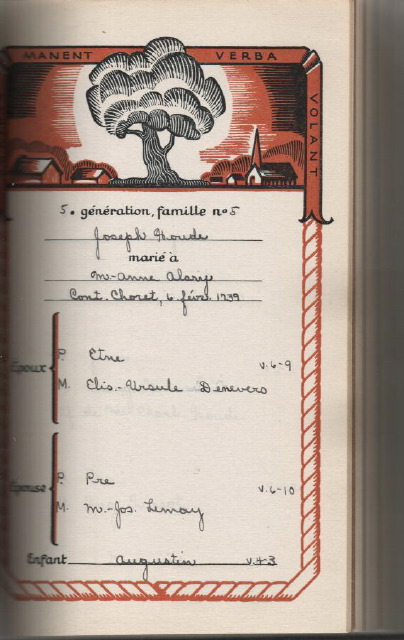 MANENT VERBA VOLANT
5. génération, famille no 5
Joseph Houde
marié à
M-Anne Alary
Cont. Choret, 6 févr. 1739
Époux
P. Etne v.6-9
M. Elis.-Ursule Denevers
Épouse
P. Pre v.6-10
M. M.-Jos. Lemay
Enfant Augustin v.4-3